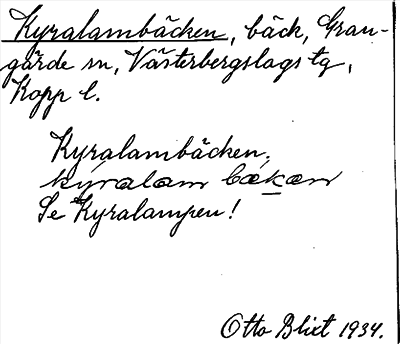 Kyralambäcken, bäck, Gran-
gärde sn, Västerbergslags tg,
Kopp l.
Kyralambäcken,
kýralam bækæn
Se Kyralampen!
Otto Blixt 1934.